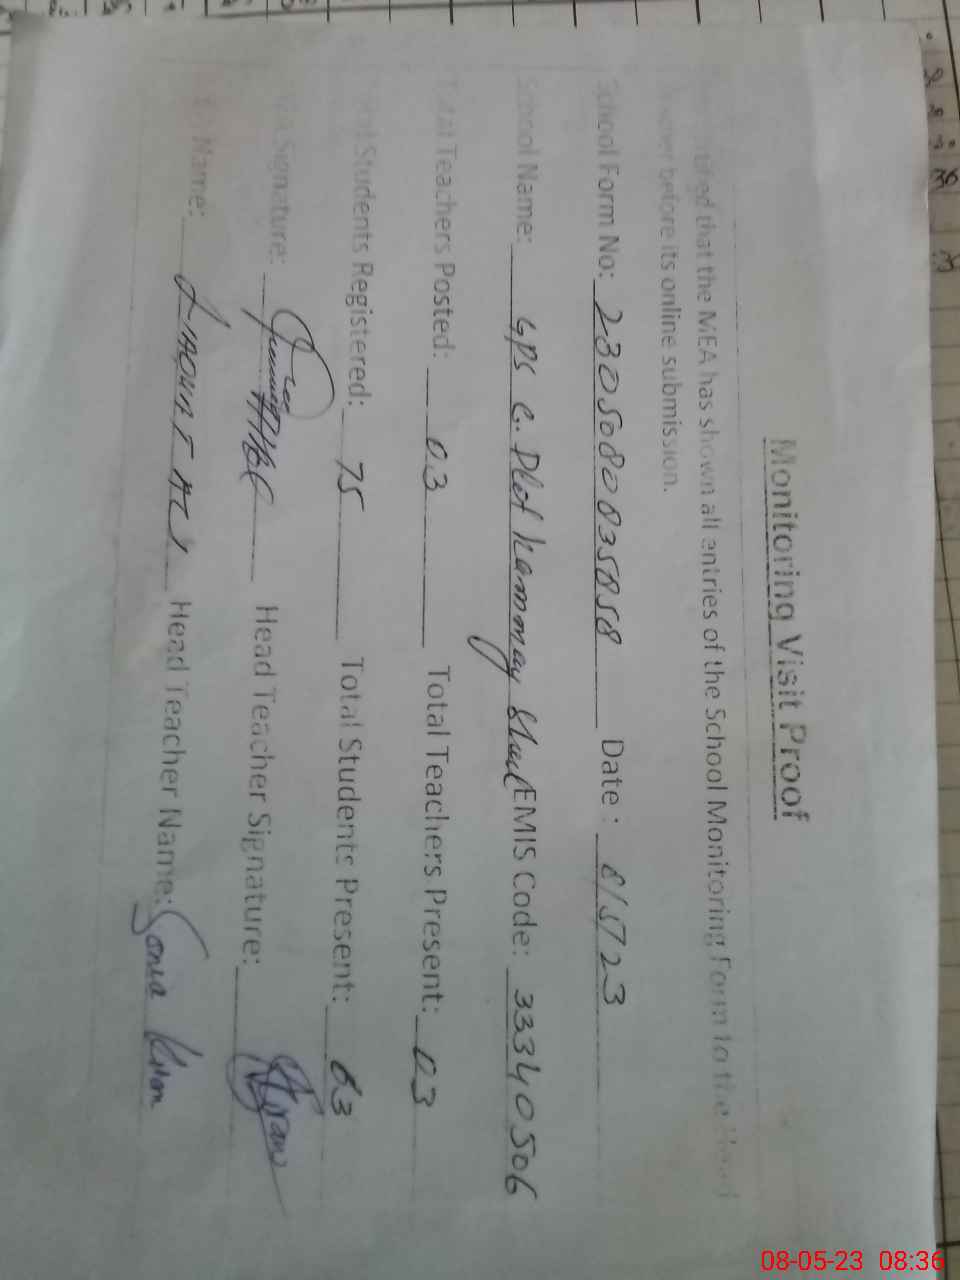 Monitoring Visit Proof
that the MEA has shown all entries of the School Monitoring Form to the Head
before its online submission.
School Form No: 230508080035858 Date : 8/5/23
School Name: GPS C. Plot EMIS Code: 33340506
Total Teachers Posted: 03 Total Teachers Present: 03
Total Students Registered: 75 Total Students Present: 63
Signature: Head Teacher Signature:
Name: LIAQUAT ALI Head Teacher Name: Sonia Khan
08-05-23 08:36